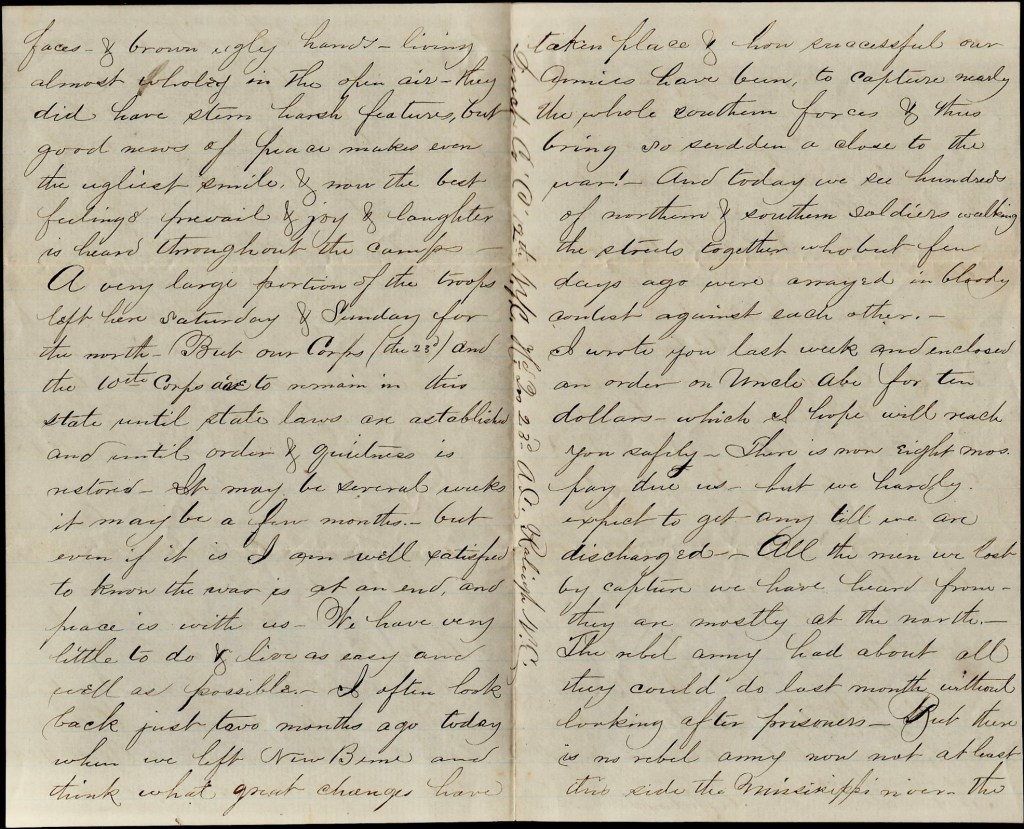 faces - & brown ugly hands - living
almost wholey in the open air - they
did have stern harsh features, but
good news of peace makes even
the ugliest smile, & now the best
feelings prevail & joy & laughter
is heard throughout the camps -
A very large portion of the troops
left here Saturday & Sunday for
the north - But our Corps (the 23d) and
the 10th Corps are to remain in this
state until state laws are astablished
and until order & quietness is
restored - It may be several weeks
it may be a few months. - but
even if it is I am well satisfied
to know the war is at an end, and
peace is with us - We have very
little to do & live as easy and
well as possible. - I often look
back just two months ago today
when we left New Berne and
think what great changes have
Co. "D" 12th N.Y.C. 23d A.C. Raleigh N.C.
taken place & how successful our
Armies have been, to capture nearly
the whole southern forces & thus
bring so sudden a close to the
war! - And today we see hundreds
of northern & southern soldiers walking
the streets together who but few
days ago were arrayed in bloody
contest against each other. -
I wrote you last week and enclosed
an order on Uncle Abe for ten
dollars - which I hope will reach
you safely - There is now Eight mos.
pay due us - but we hardly
expect to get any till we are
discharged - - All the men we lost
by capture we have heard from -
they are mostly at the north. -
The rebel army had about all
they could do last month without
looking after prisoners - But there
is no rebel army now not at least
this side the Missisippi river - the